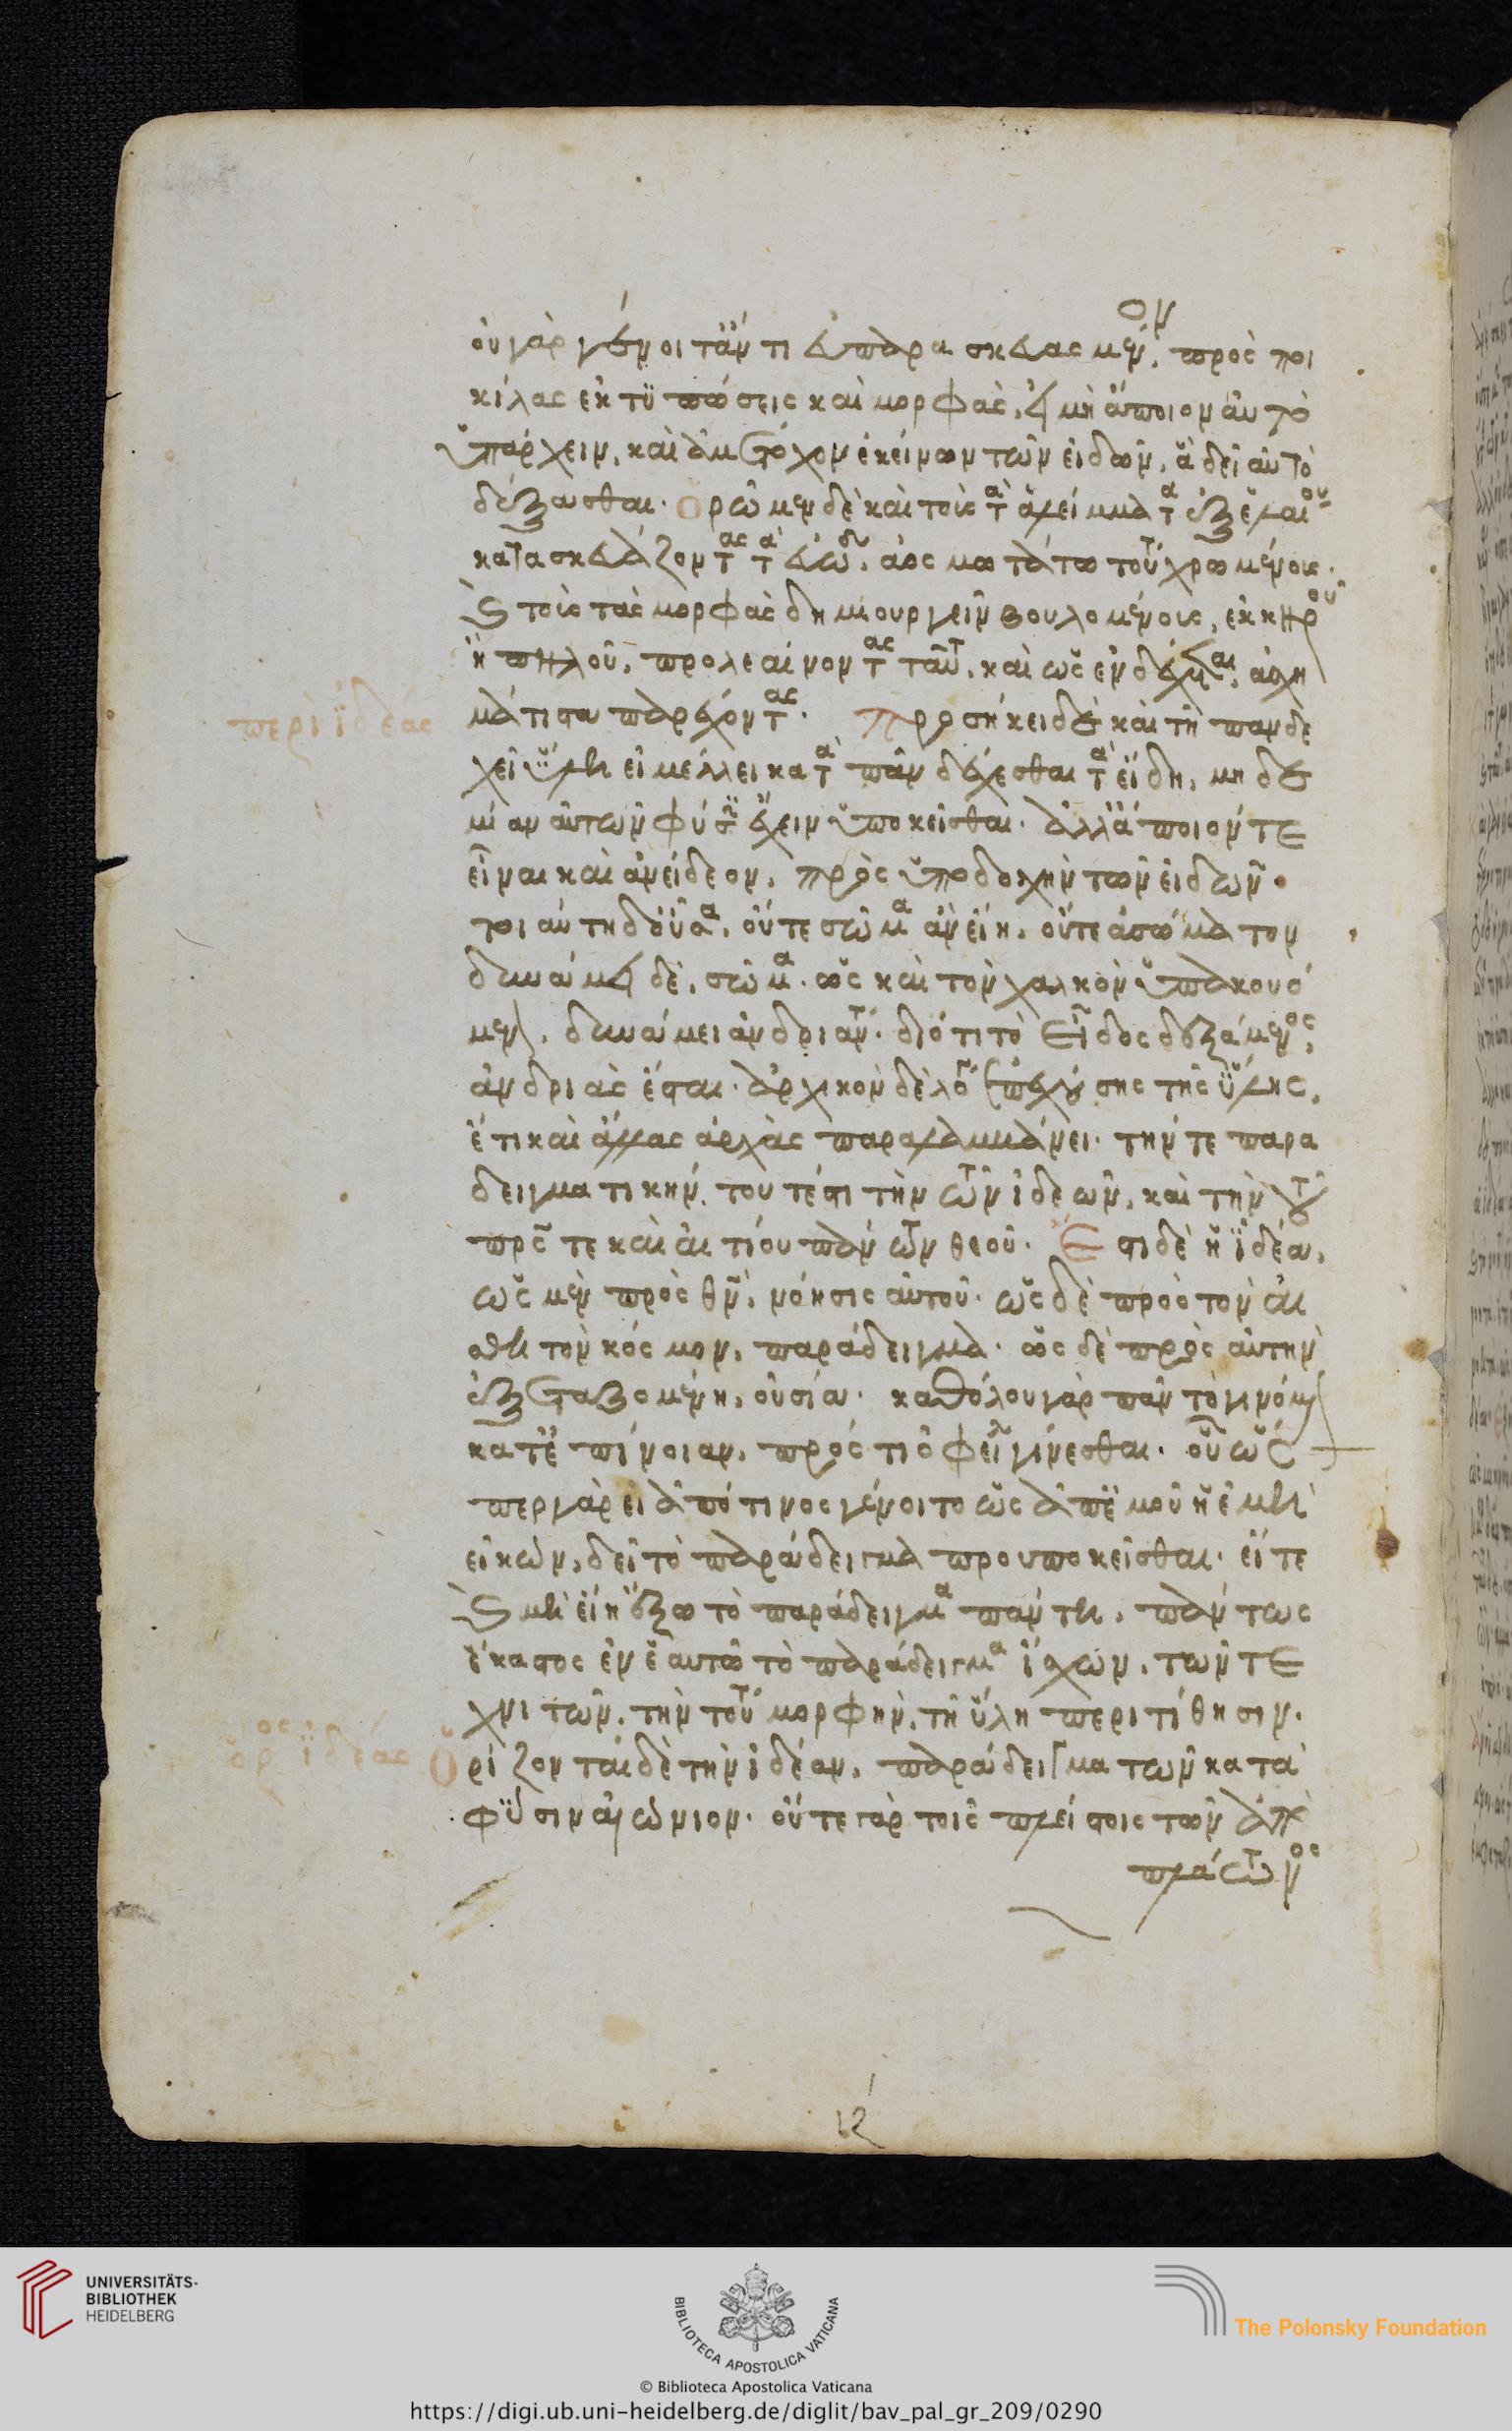 οὐ γὰρ γένοιτ' ἄν τι εὖ παρασκευασμένον, πρὸς ποι
κίλας ἐκτυπώσεις καὶ μορφὰς, εἰ μὴ ἄποιον αὐτὸ
ὑπάρχειν, καὶ ἀμέτοχον ἐκείνων τῶν εἰδῶν, ἃ δεῖ αὐτὸ
δέξασθαι. Ὁρῶμεν δὲ καὶ τοὺς τὰ ἀλείμματα ἐξ ἐλαίου
κατασκευάζοντας τὰ εὐώδη, ἀοσμωτάτω τούτω χρωμένοις.
καὶ τοὺς τὰς μορφὰς δημιουργεῖν βουλομένους, ἐκ κηροῦ
ἢ πηλοῦ, προλεαίνοντας ταῦτα, καὶ ὡς ἐνδέχεται, ἀσχη
μάτιστα παρέχοντας. Προσήκει δὲ καὶ τῆ πανδε
περὶ ἰδέας
χεῖ ὕλη εἰ μέλλει κατὰ πᾶν δέχεσθαι τὰ εἴδη, μηδε
μίαν αὐτῶν φύσιν ἔχειν ὑποκεῖσθαι. ἀλλ' ἄποιόν τε
εἶναι καὶ ἀνείδεον, πρὸς ὑποδοχὴν τῶν εἰδῶν.
τοιαύτη δ' οὖσα, οὔτε σῶμα ἂν εἴη, οὔτε ἀσώματον
δυνάμει δὲ, σῶμα. ὡς καὶ τὸν χαλκὸν ὑπακούο
μεν, δυνάμει ἀνδριάντα. διότι τὸ εἶδος δεξάμενος,
ἀνδριὰς ἔσται. ἀρχικὸν δὲ λόγον ἐπεχούσης τῆς ὕλης,
ἔτι καὶ ἄλλας ἀρχὰς παραλαμβάνει. τήν τε παρα
δειγματικήν, τουτέστι τὴν τῶν ἰδεῶν, καὶ τὴν τοῦ
πρς τε καὶ αἰτίου πάντων θεοῦ. Ἔστι δὲ ἡ ἰδέα,
ὡς μὲν πρὸς θν, νόησις αὐτοῦ. ὡς δὲ πρὸς τὸν αἰ
σθητὸν κόσμον, παράδειγμα. ὡς δὲ πρὸς αὐτὴν
ἐξεταζομένη, οὐσία. καθόλου γὰρ πᾶν τὸ γινόμενον
κατ' ἐπίνοιαν, πρός τι ὀφείλει γίνεσθαι. οὗ ὥσ
περ γὰρ εἰ ἀπό τινος γένοιτο ὡς ἀπ' ἐμοῦ ἡ ἐμὴ
εἰκὼν, δεῖ τὸ παράδειγμα προυποκεῖσθαι. εἴτε
καὶ μὴ εἴη ἔξω τὸ παράδειγμα πάντη, πάντως
ἕκαστος ἐν ἑαυτῶ τὸ παράδειγμα ἴσχων, τῶν τε
χνιτῶν, τὴν τούτου μορφὴν, τῆ ὕλη περιτίθησιν.
ὅρος ἰδέας
Ὁρίζονται δὲ τὴν ἰδέαν, παράδειγμα τῶν κατὰ
φύσιν αἰώνιον. οὔτε γὰρ τοῖς πλείστοις τῶν ἀπὸ
πλάτωνος